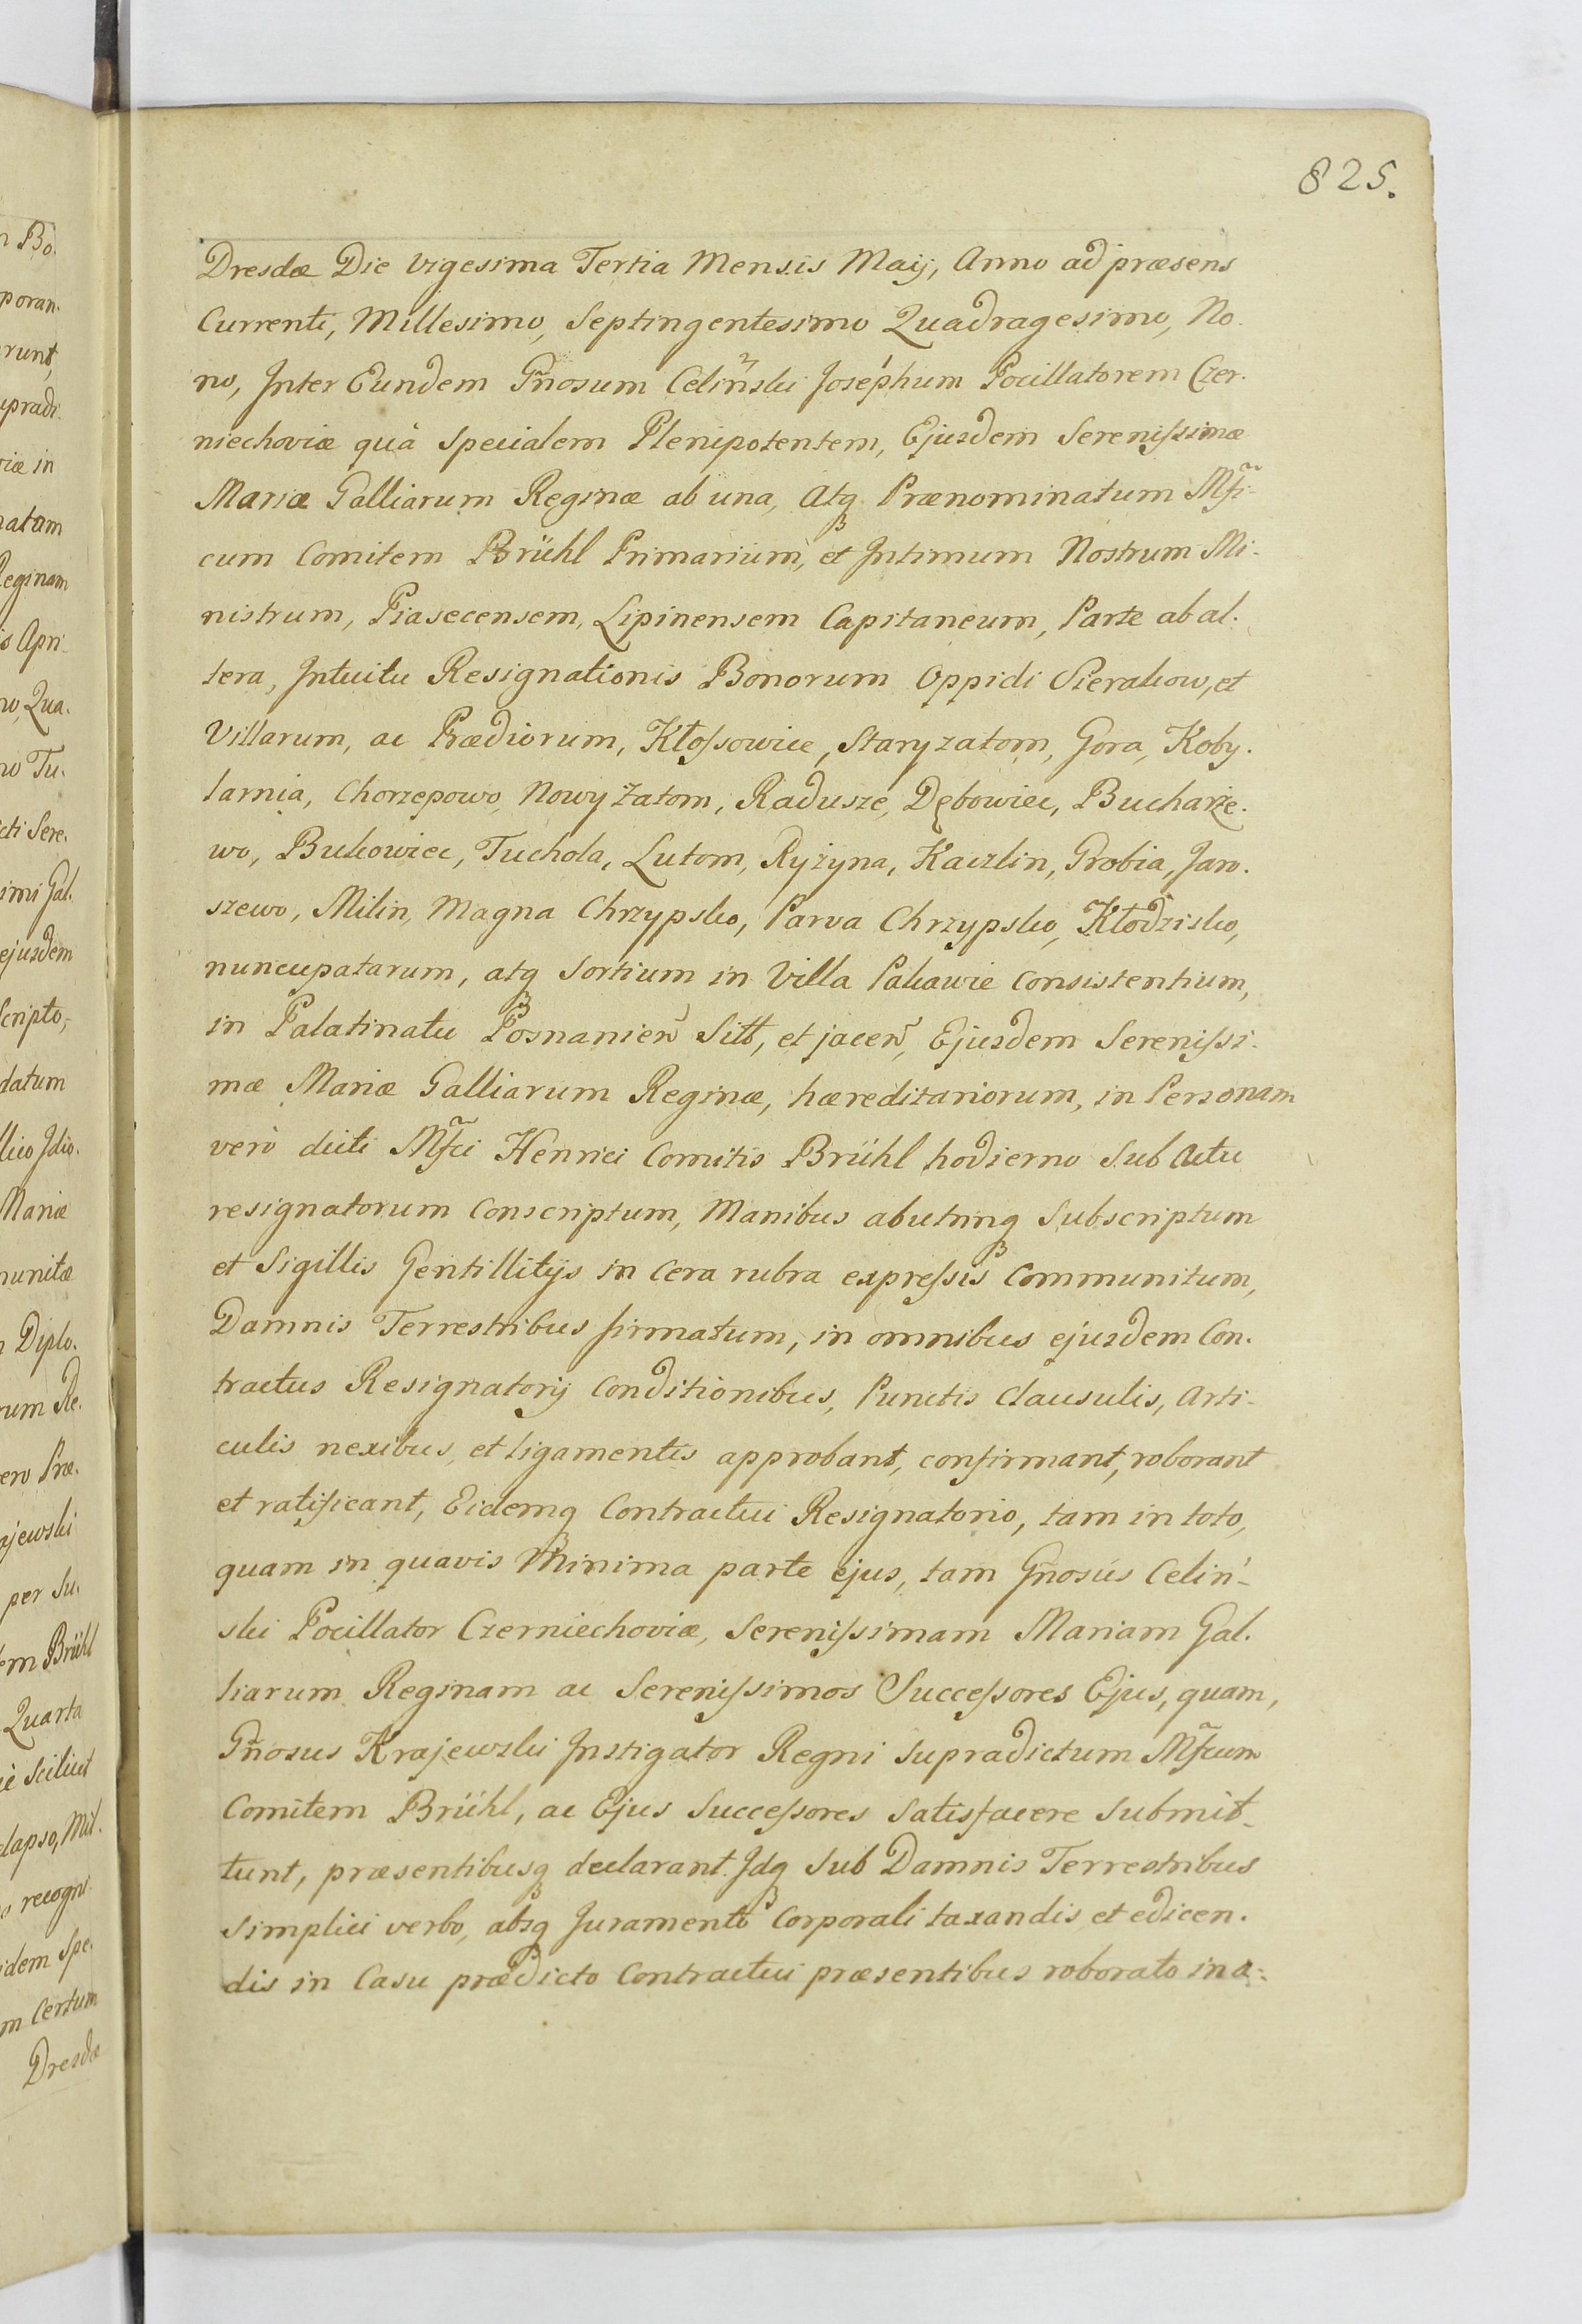 825.
Dresdæ Die vigesima Tertia Mensis Maij, Anno ad præsens
Currente, Millesimo, Septingentesimo Quadragesimo, No-
no, Inter Eundem Gñosum Celiński Josephum Pocillatorem Czer-
niechoviæ quà Specialem Plenipotentem, Ejusdem Serenissimæ
Mariæ Galliarum Reginæ ab una, Atq₃ Prænominatum Mf̃i-
cum Comitem Brühl Primarium, et Intimum Nostrum Mi-
nistrum, Piasecensem, Lipinensem Capitaneum, Parte ab al-
tera, Intuitu Resignationis Bonorum Oppidi Sierakow, et
Villarum, ac Prædiorum, Kłossowice, Staryzatom, Gora, Koby-
larnia, Chorzepowo, Nowy Zatom, Radusze, Dębowiec, Bucharze-
wo, Bukowiec, Tuchola, Lutom, Ryżyna, Kaczlin, Grobia, Jaro-
szewo, Milin, Magna Chrzypsko, Parva Chrzypsko, Kłodzisko,
nuncupatarum, atq₃ Sortium in Villa Pakawie consistentium,
in Palatinatu Posnanien̄ Sitt, et jacen̄, Ejusdem Serenissi-
mæ Mariæ Galliarum Reginæ, hæreditariorum, in Personam
verò dicti Mf̃ci Henrici Comitis Brühl hodierno Sub Actu
resignatorum Conscriptum, Manibus abutrinq₃ Subscriptum
et Sigillis Gentillitijs in Cera rubra expressis Communitum,
Damnis Terrestribus firmatum, in omnibus ejusdem Con-
tractus Resignatorij Conditionibus, Punctis Clausulis, Arti-
culis nexibus, et ligamentis approbant, confirmant, roborant
et ratificant, Eidemq₃ Contractui Resignatorio, tam in toto,
quam in quavis Minima parte ejus, tam Gñosus Celiń-
ski Pocillator Czerniechoviæ, Serenissimam Mariam Gal-
liarum Reginam ac Serenissimos Successores Ejus, quam,
Gñosus Krajewski Instigator Regni Supradictum Mf̃cum
Comitem Brühl, ac Ejus Successores Satisfacere Submit-
tunt, præsentibusq₃ declarant. Idq₃ Sub Damnis Terrestribus
Simplici verbo, absq₃ Juramento Corporali taxandis, et edicen-
dis in Casu prædicto Contractui præsentibus roborato in a-